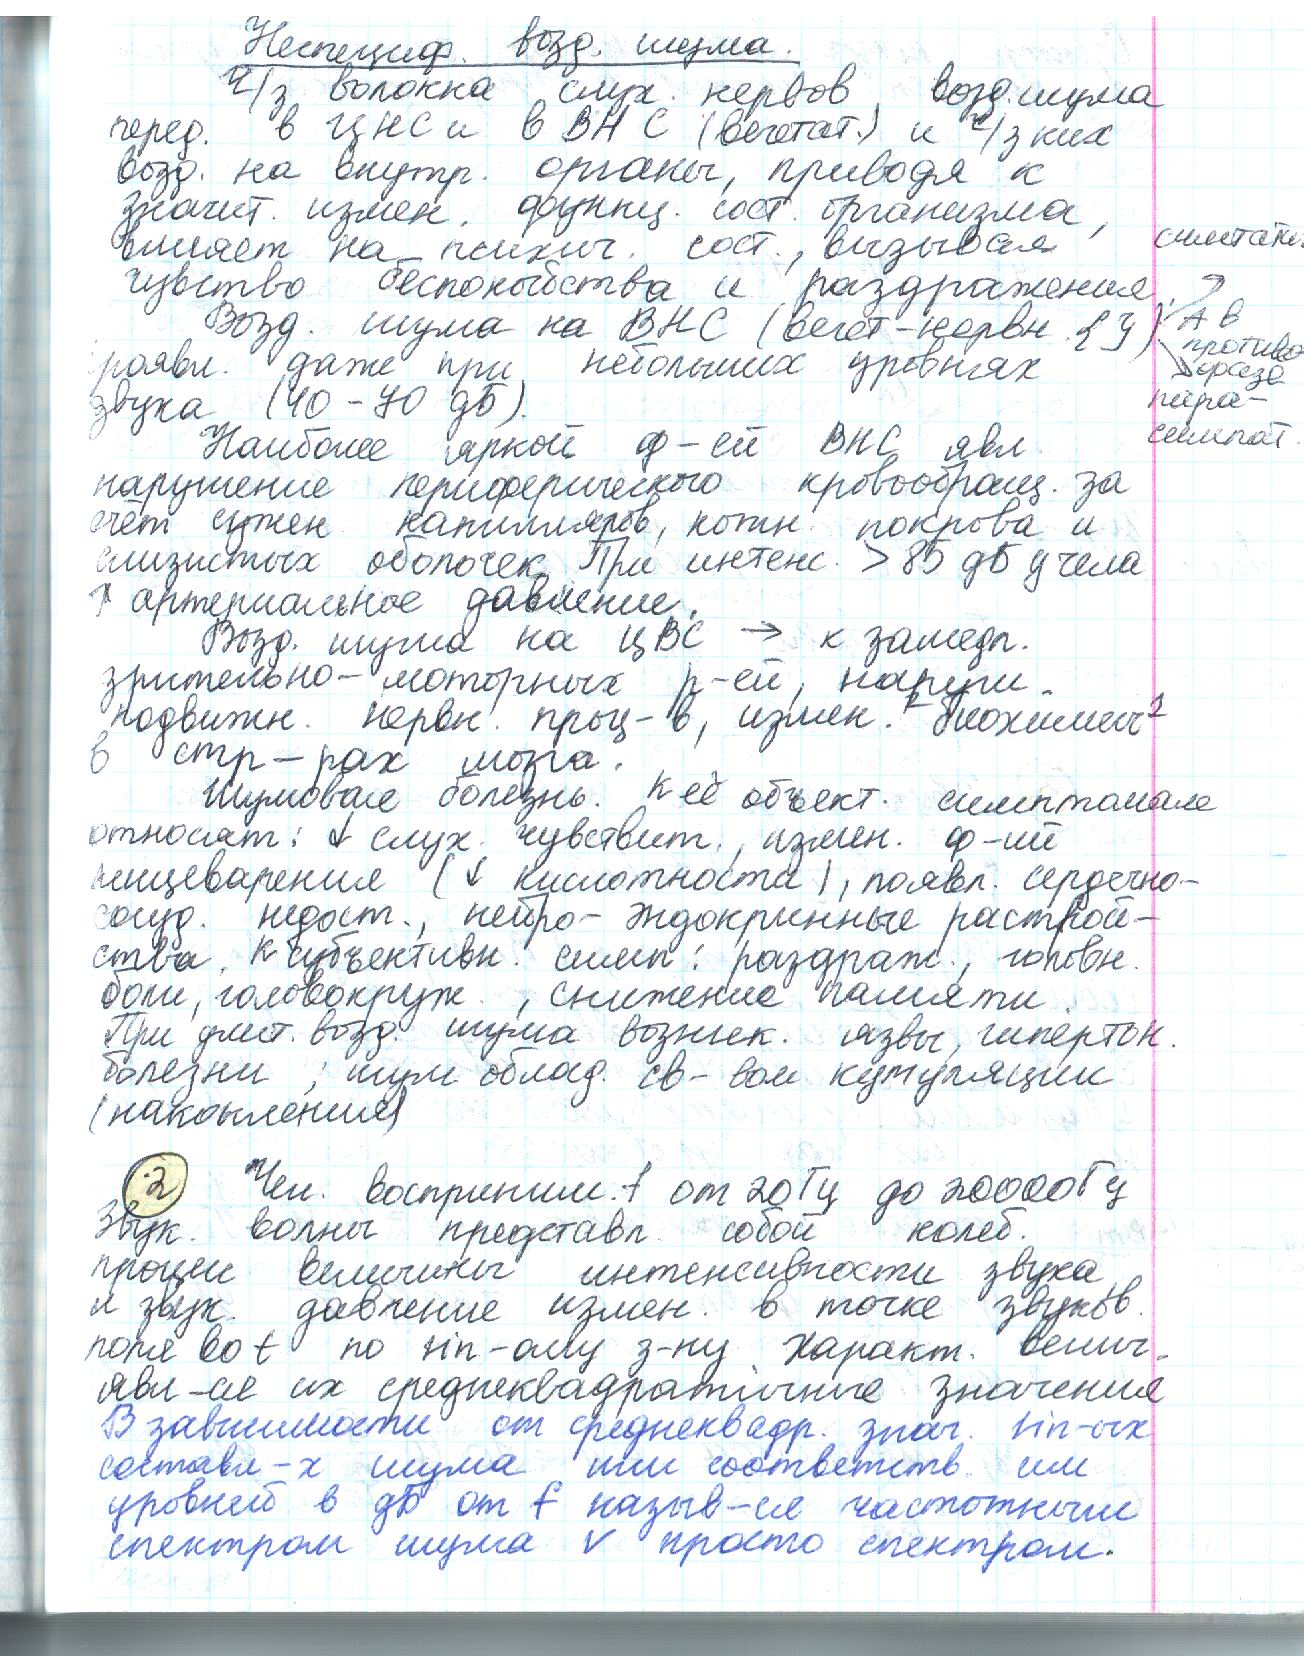 Неспециф. возд. шума.
Ч/з волокна слух. нервов возд. шума
перед. в ЦНС и в ВНС (вегетат.) и ч/з них
возд. на внутр. органы, приводя к
значит. измен. функц. сост. организма,
влияет на психич. сост., вызывая
чувство беспокойства и раздражения.
Возд. шума на ВНС (вегет-нервн. {})
проявл. даже при небольших уровнях
звука (40-70 дБ).
Наиболее яркой ф-ей ВНС явл.
нарушение периферического кровообращ. за
счёт сужен. капилляров, кожн. покрова и
слизистых оболочек. При интенс. >85 дБ у чела
↑ артериальное давление.
Возд. шума на ЦВС → к замедл.
зрительно-моторных р-ей, наруш.
подвижн. нервн. проц-в, измен. биохимич
в стр-рах мозга.
Шумовая болезнь. К её объект. симптомам
относят: ↓ слух. чувствит., измен. ф-ий
пищеварения (↓ кислотности), появл. сердечно-
сосуд. недост., нейро-эндокринные расстрой-
ства. К субъективн. симп: раздраж., головн.
боли, головокруж., снижение памяти.
При длит. возд. шума возник. язвы, гипертон.
болезни; шум облад. св-вом кумуляции
(накопления)
2 Чел. восприним. f от 20 Гц до 20000 Гц
Звук. волны представл. собой колеб.
процесс величины интенсивности звука
и звук. давление измен. в точке звуков.
поля во t по sin-ому з-ну. Характ. велич.
явл-ся их среднеквадратичные значения
В зависимости от среднеквадр. знач. sin-ых
составл-х шума или соответств. им
уровней в дБ от f назыв-ся частотным
спектром шума v просто спектром.
симпат.
АВ
противо
фаза
пара-
симпат.